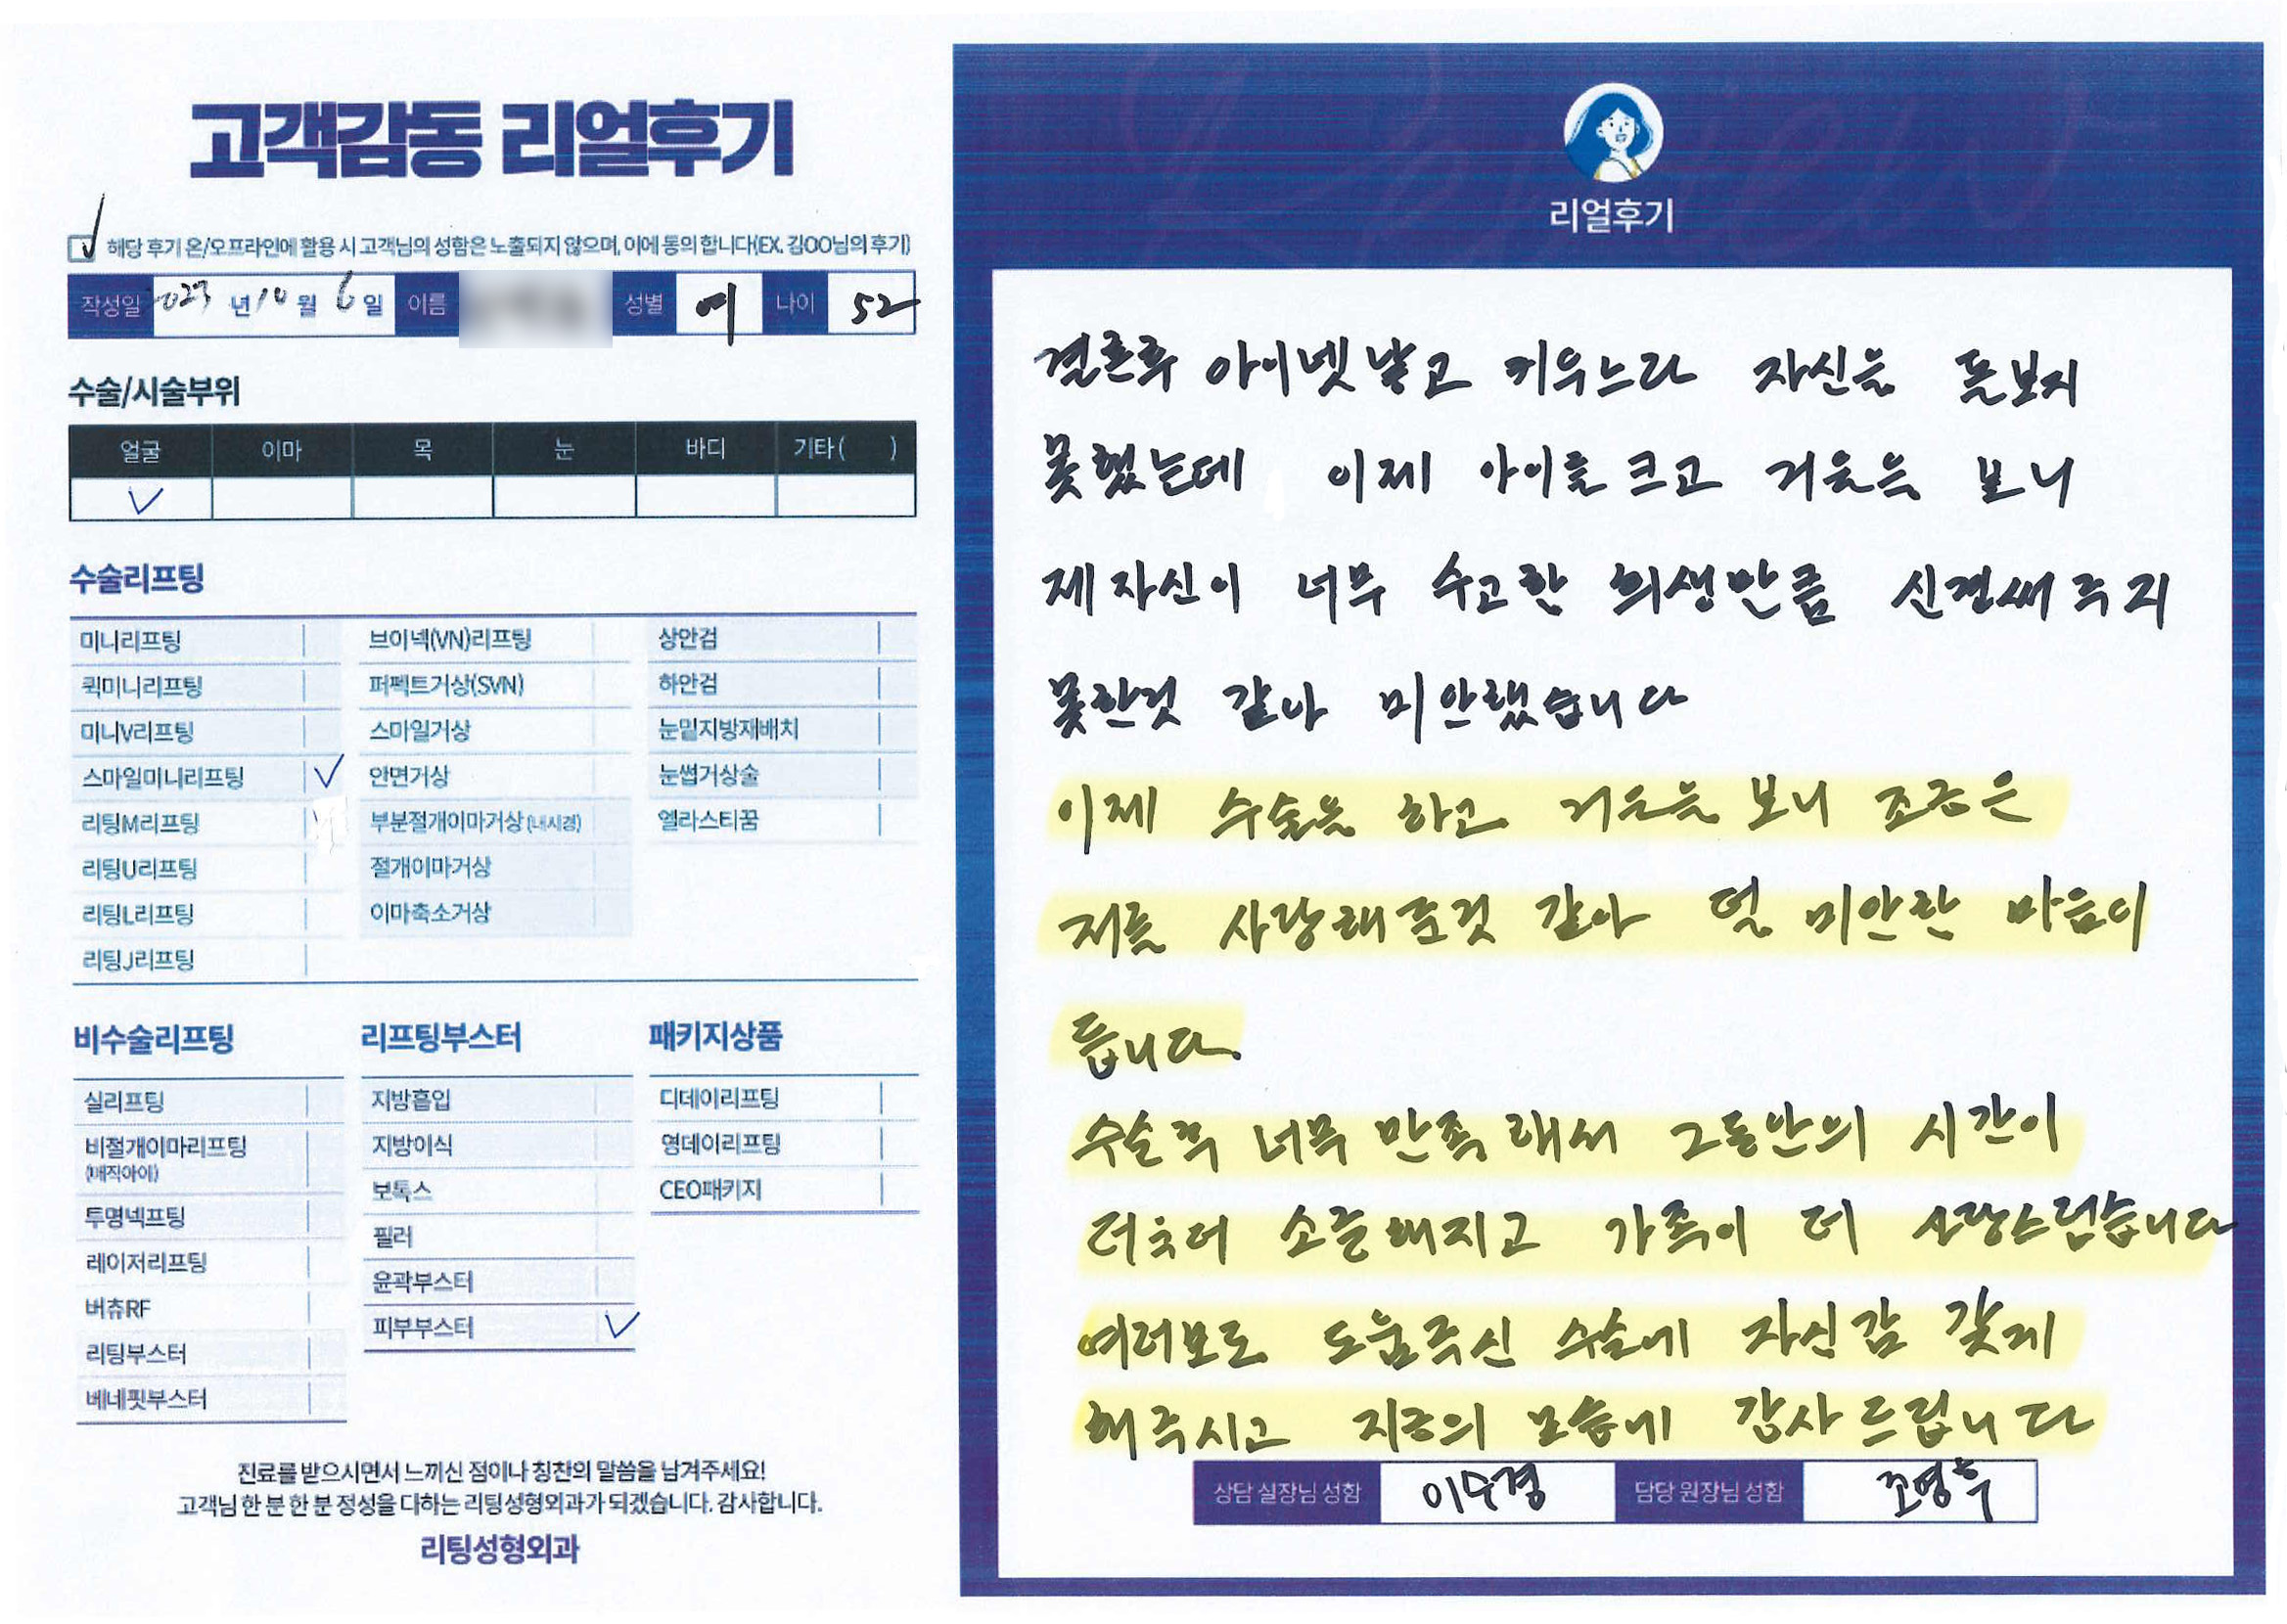 고객감동 리얼후기
해당 후기 온/오프라인에 활용 시 고객님의 성함은 노출되지 않으며, 이에 동의 합니다(EX. 김OO님의 후기)
작성일 2023 년 10 월 6 일 이름 성별 여 나이 52
수술/시술부위
얼굴 이마 목 눈 바디 기타( )
수술리프팅
미니리프팅 브이넥(VN)리프팅 상안검
퀵미니리프팅 퍼펙트거상(SVN) 하안검
미니V리프팅 스마일거상 눈밑지방재배치
스마일미니리프팅 안면거상 눈썹거상술
리팅M리프팅 부분절개이마거상(내시경) 엘라스티꿈
리팅U리프팅 절개이마거상
리팅L리프팅 이마축소거상
리팅J리프팅
비수술리프팅 리프팅부스터 패키지상품
실리프팅 지방흡입 디데이리프팅
비절개이마리프팅 지방이식 영데이리프팅
(매직아이) 보톡스 CEO패키지
투명넥프팅 필러
레이저리프팅 윤곽부스터
버츄RF 피부부스터
리팅부스터
베네핏부스터
진료를 받으시면서 느끼신 점이나 칭찬의 말씀을 남겨주세요!
고객님 한 분 한 분 정성을 다하는 리팅성형외과가 되겠습니다. 감사합니다.
리팅성형외과
리얼후기
결혼후 아이넷낳고 키우느라 자신을 돌보지
못했는데 이제 아이들 크고 거울을 보니
제 자신이 너무 수고한 희생만큼 신경써주지
못한것 같아 미안했습니다
이제 수술을 하고 거울을 보니 조금은
저를 사랑해준것 같아 덜 미안한 마음이
듭니다.
수술후 너무 만족해서 그동안의 시간이
더욱더 소중해지고 가족이 더 사랑스럽습니다
여러모로 도움주신 수술에 자신감 갖게
해주시고 지금의 모습에 감사드립니다
상담 실장님 성함 이수경 담당 원장님 성함 조명후